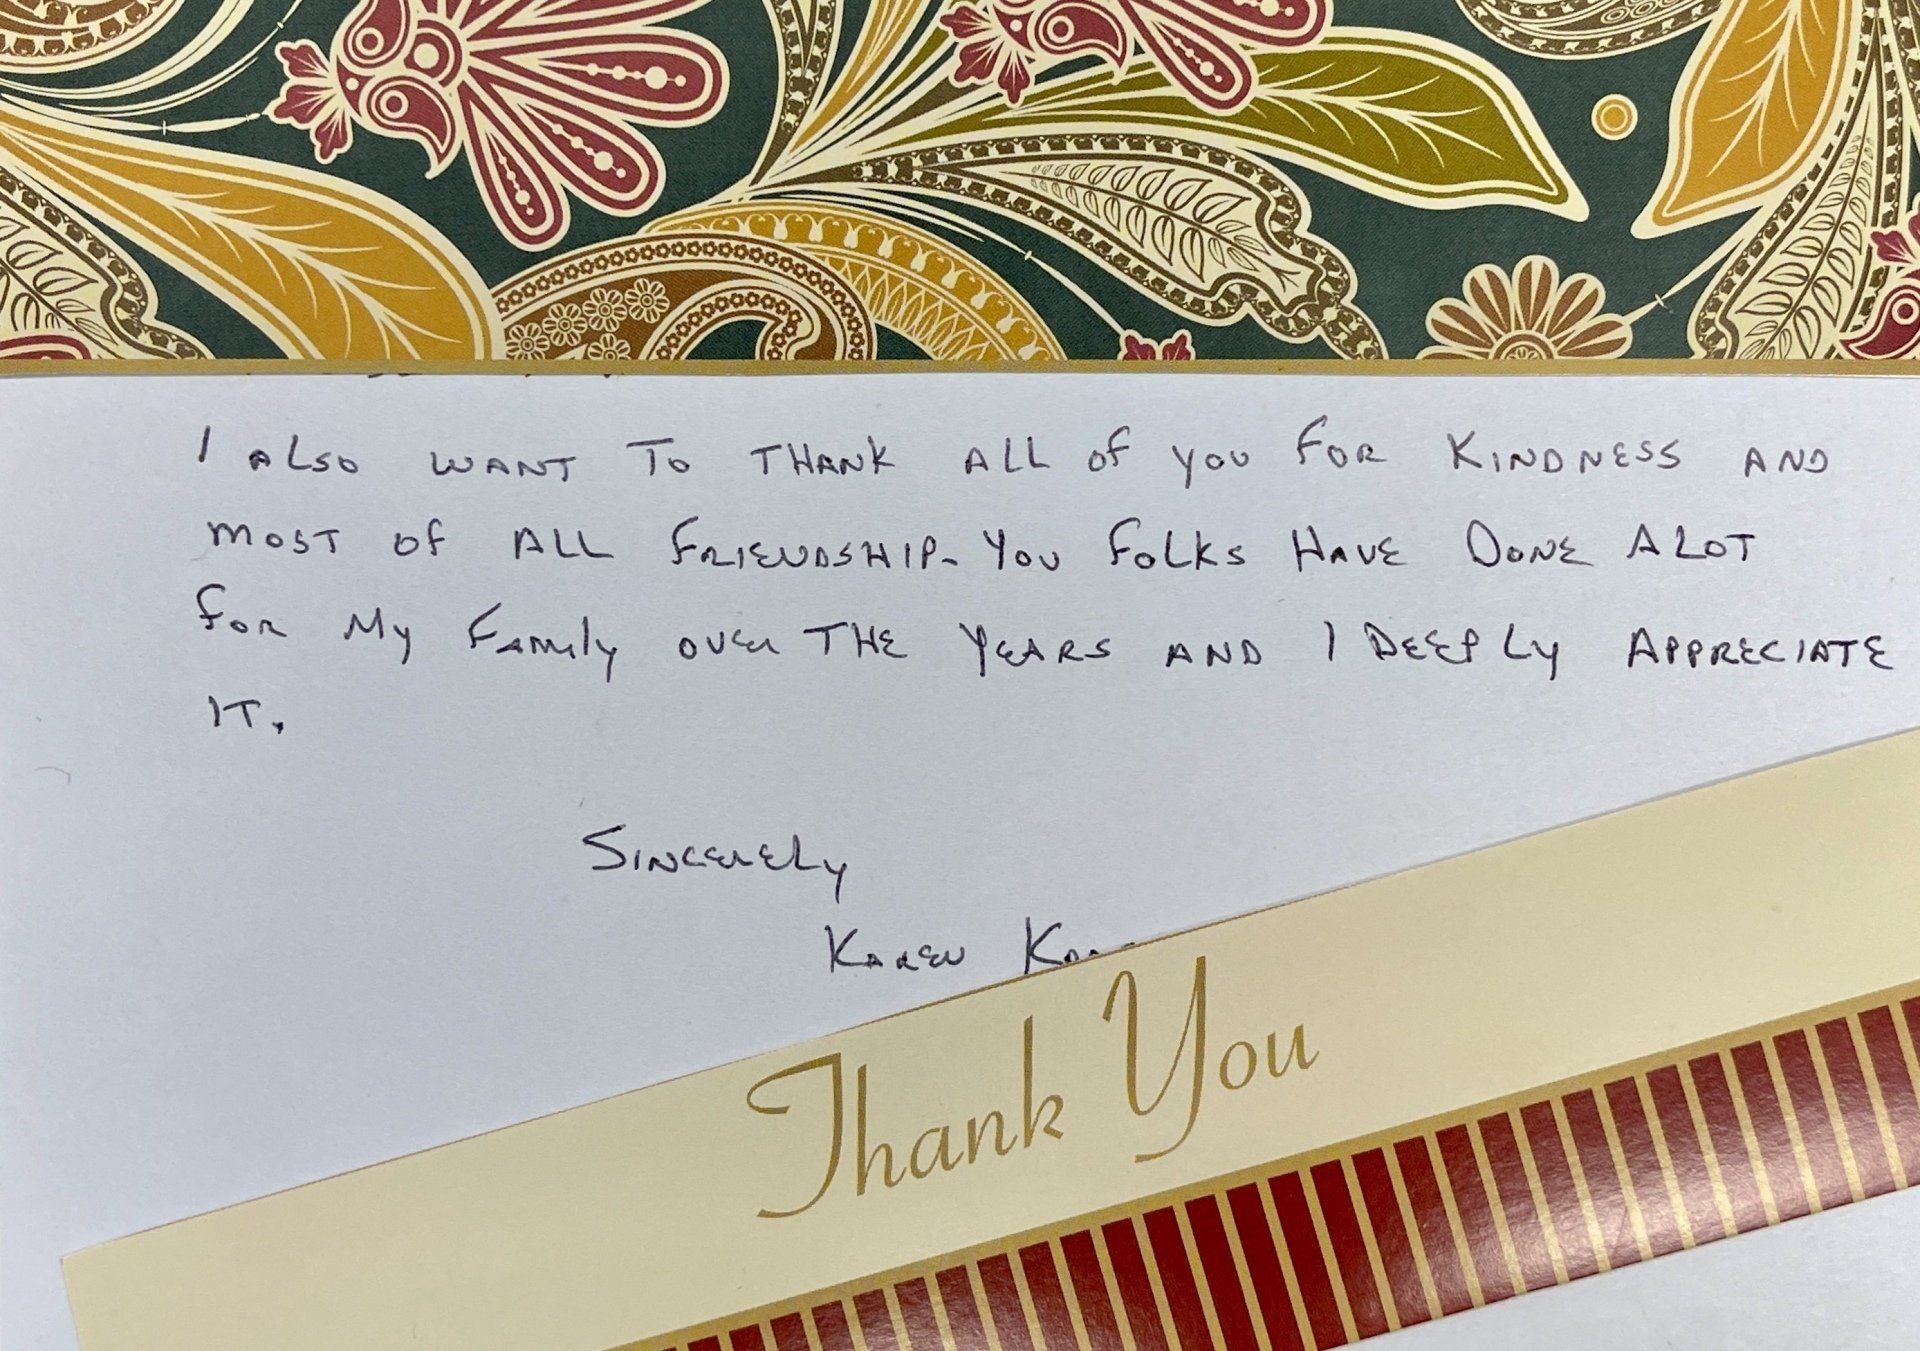 I ALSO WANT TO THANK ALL OF YOU FOR KINDNESS AND
MOST OF ALL FRIENDSHIP- YOU FOLKS HAVE DONE ALOT
FOR My FAMily OVER THE YEARS AND I DEEPLy APPRECIATE
IT.
SINCERELy
KAREN
Thank You